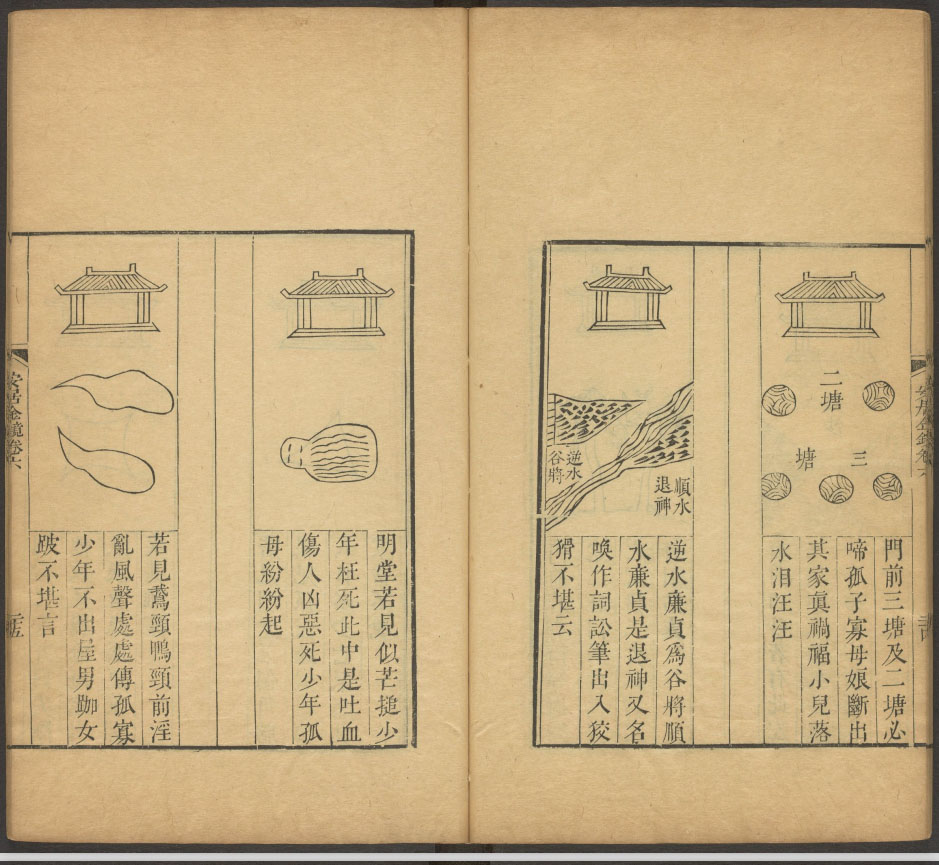 二塘
三塘
門前三塘及二塘必
啼孤子寡母娘斷出
其家真禍福小兒落
水泪汪汪
逆水
谷將
順水
退神
逆水廉貞爲谷將順
水廉貞是退神又名
喚作詞訟筆出入狡
猾不堪云
明堂若見似芒搥少
年枉死此中是吐血
傷人凶惡死少年孤
母紛紛起
若見鵞頸鴨頸前淫
亂風聲處處傳孤寡
少年不出屋男跏女
跛不堪言
安居金鏡卷六